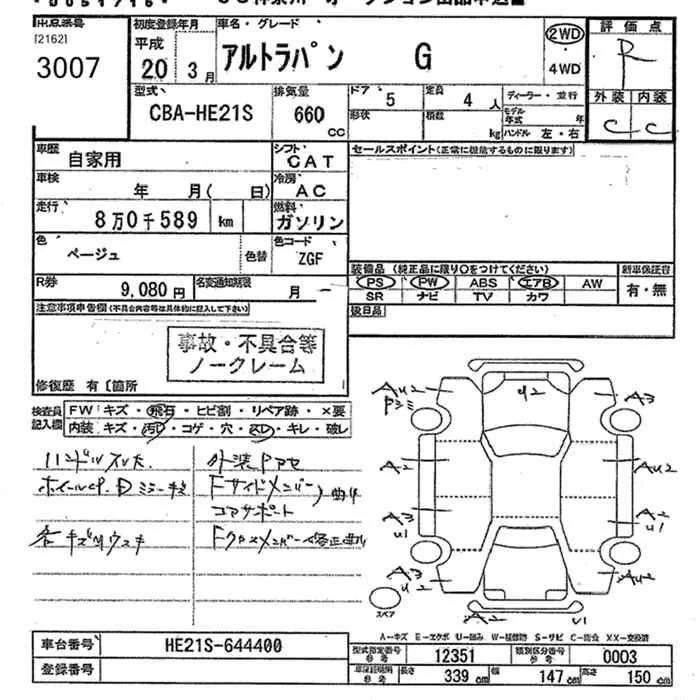 出品番号
[2162]
3007
初度登録年月
平成
20 3月
車名・グレード
アルトラパン G
2WD
・
4WD
評価点
R
外装 内装
C C
型式
CBA-HE21S
排気量
660
CC
ドア 5 定員 4 人
形状 積載 kg
ディーラー・並行
モデル年式 年
ハンドル 左・右
車歴 自家用
シフト CAT
車検 年 月( 日)
冷房 AC
走行 8万0千589 km
燃料 ガソリン
色 ベージュ
色替
色コード ZGF
R券 9,080円
名変通知期限 月
セールスポイント(正常に機能するものに限ります)
装備品 (純正品に限り○をつけてください)
PS PW ABS エアB AW
SR ナビ TV カワ
新車保証書
有・無
後日品
注意事項申告欄(不具合内容等は具体的に記入して下さい)
事故・不具合等
ノークレーム
修復歴 有〔箇所
検査員
記入欄
FW キズ・飛石・ヒビ割・リペア跡・×要
内装 キズ・汚れ・コゲ・穴・スレ・キレ・破レ
ハンドルスレ大
外装Pアセ
Fサイドメンバー
コアサポート
曲り
各キズ
A2
U2
A3
A2
AU2
A3
U1
A2
U1
A3
U2
AU2
A2
U1
スペア
A-キズ E-エクボ U-凹み W-補修跡 S-サビ C-腐食 XX-交換済
車台番号 HE21S-644400
登録番号
型式指定番号
参考
12351
類別区分番号
参考
0003
車検証明細
参考
長さ 339 cm 幅 147 cm 高さ 150 cm